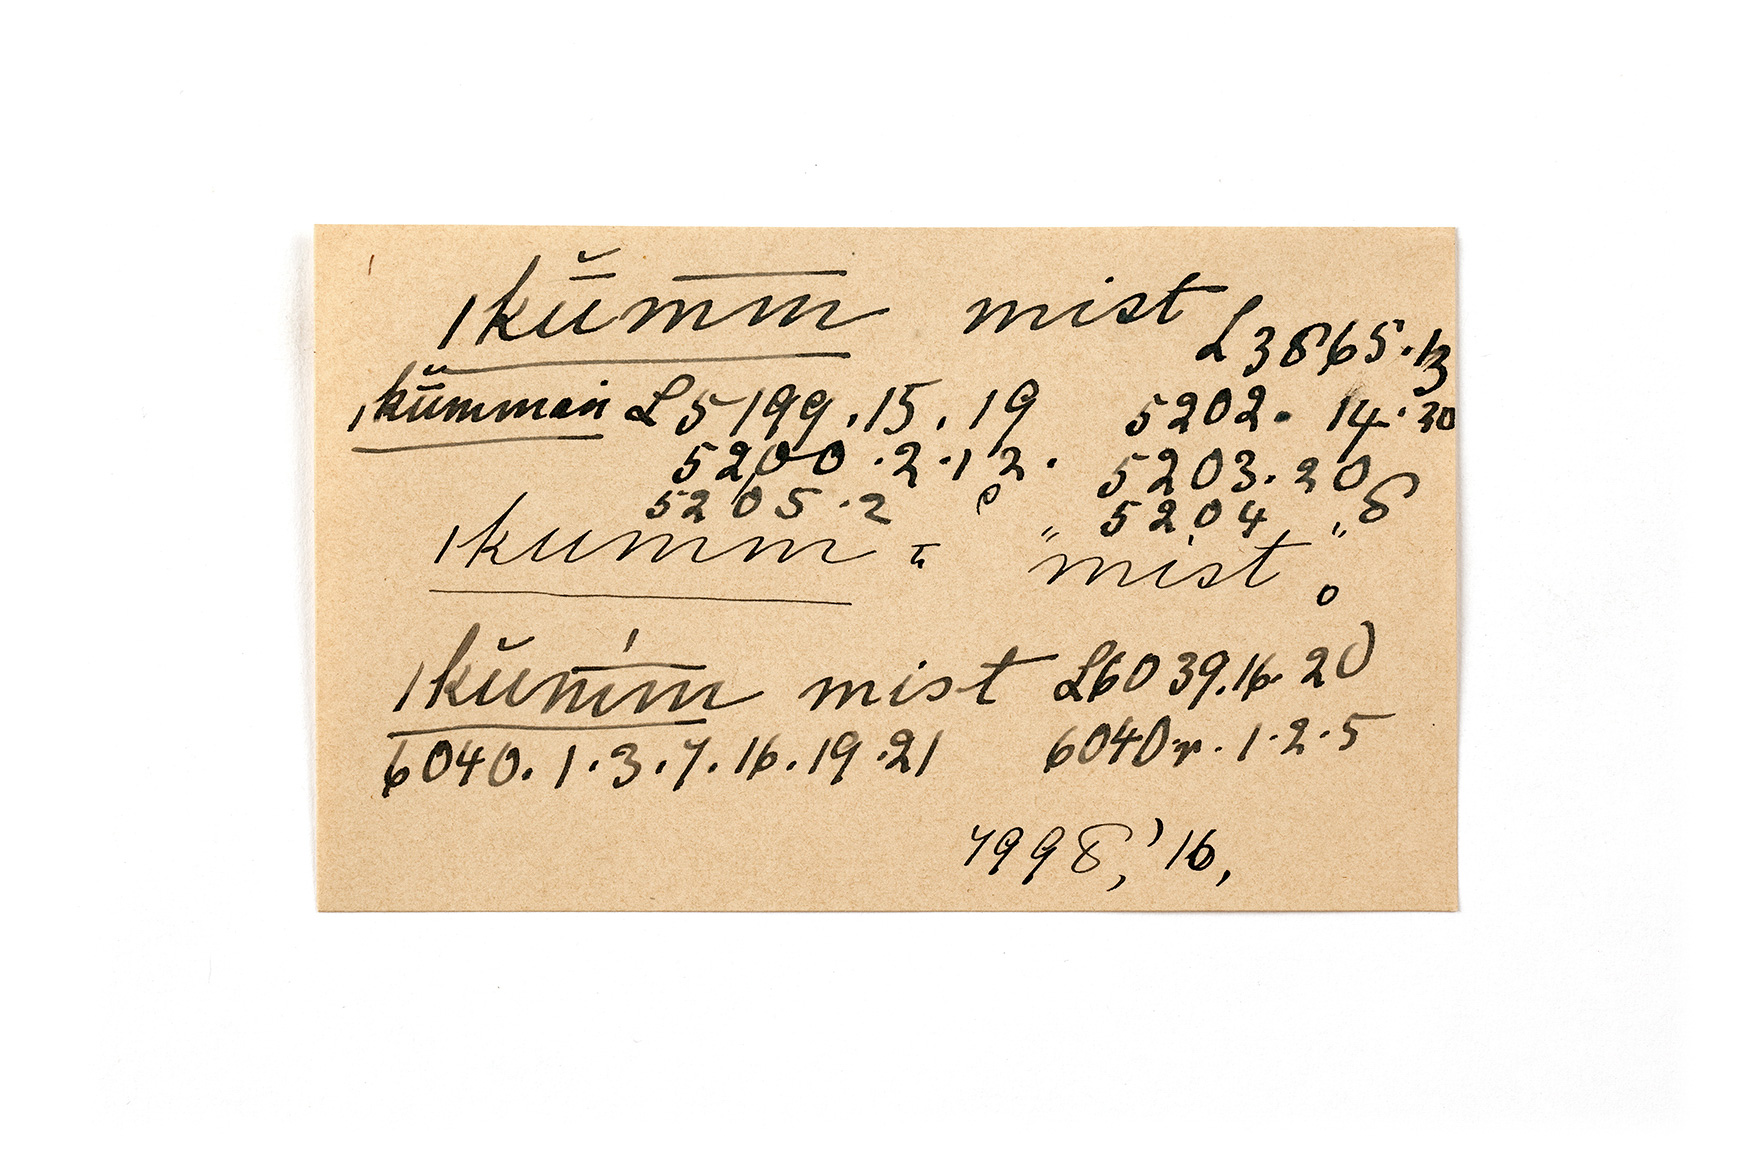 ǀkṻm̅m̅ mist
L 3865.13
ǀkṻmmain L 5199.15.19 5202. 14.20
5200.2.12. 5203.20
5205.2 5204 8
ǀkumm = "mist".
ǀkṻm̅ḿ mist L 6039.16.20
6040.1.3.7.16.19.21 6040r.1.2.5
7998,'16,